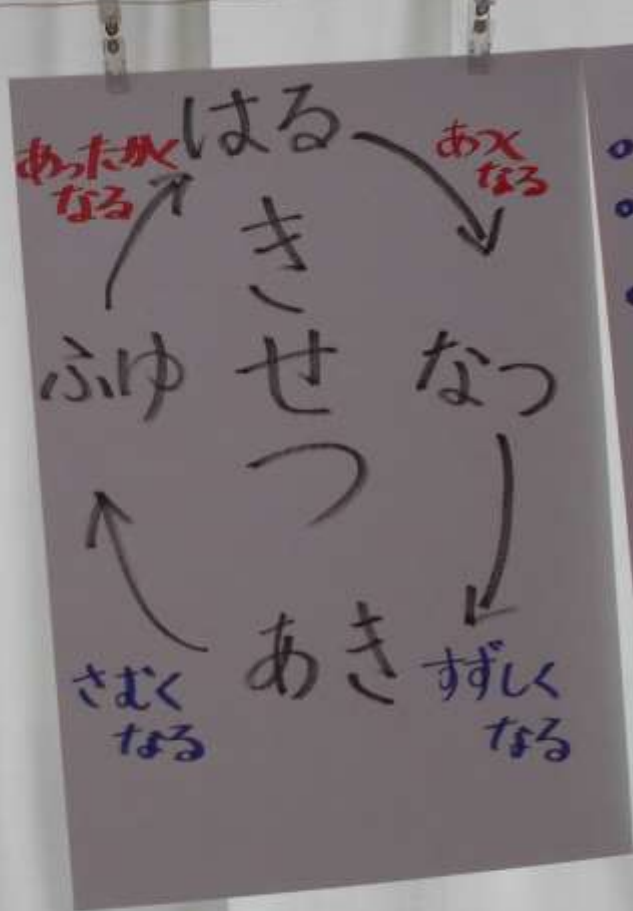 はる
あつく
なる
なつ
すずしく
なる
あき
さむく
なる
ふゆ
あったかく
なる
きせつ